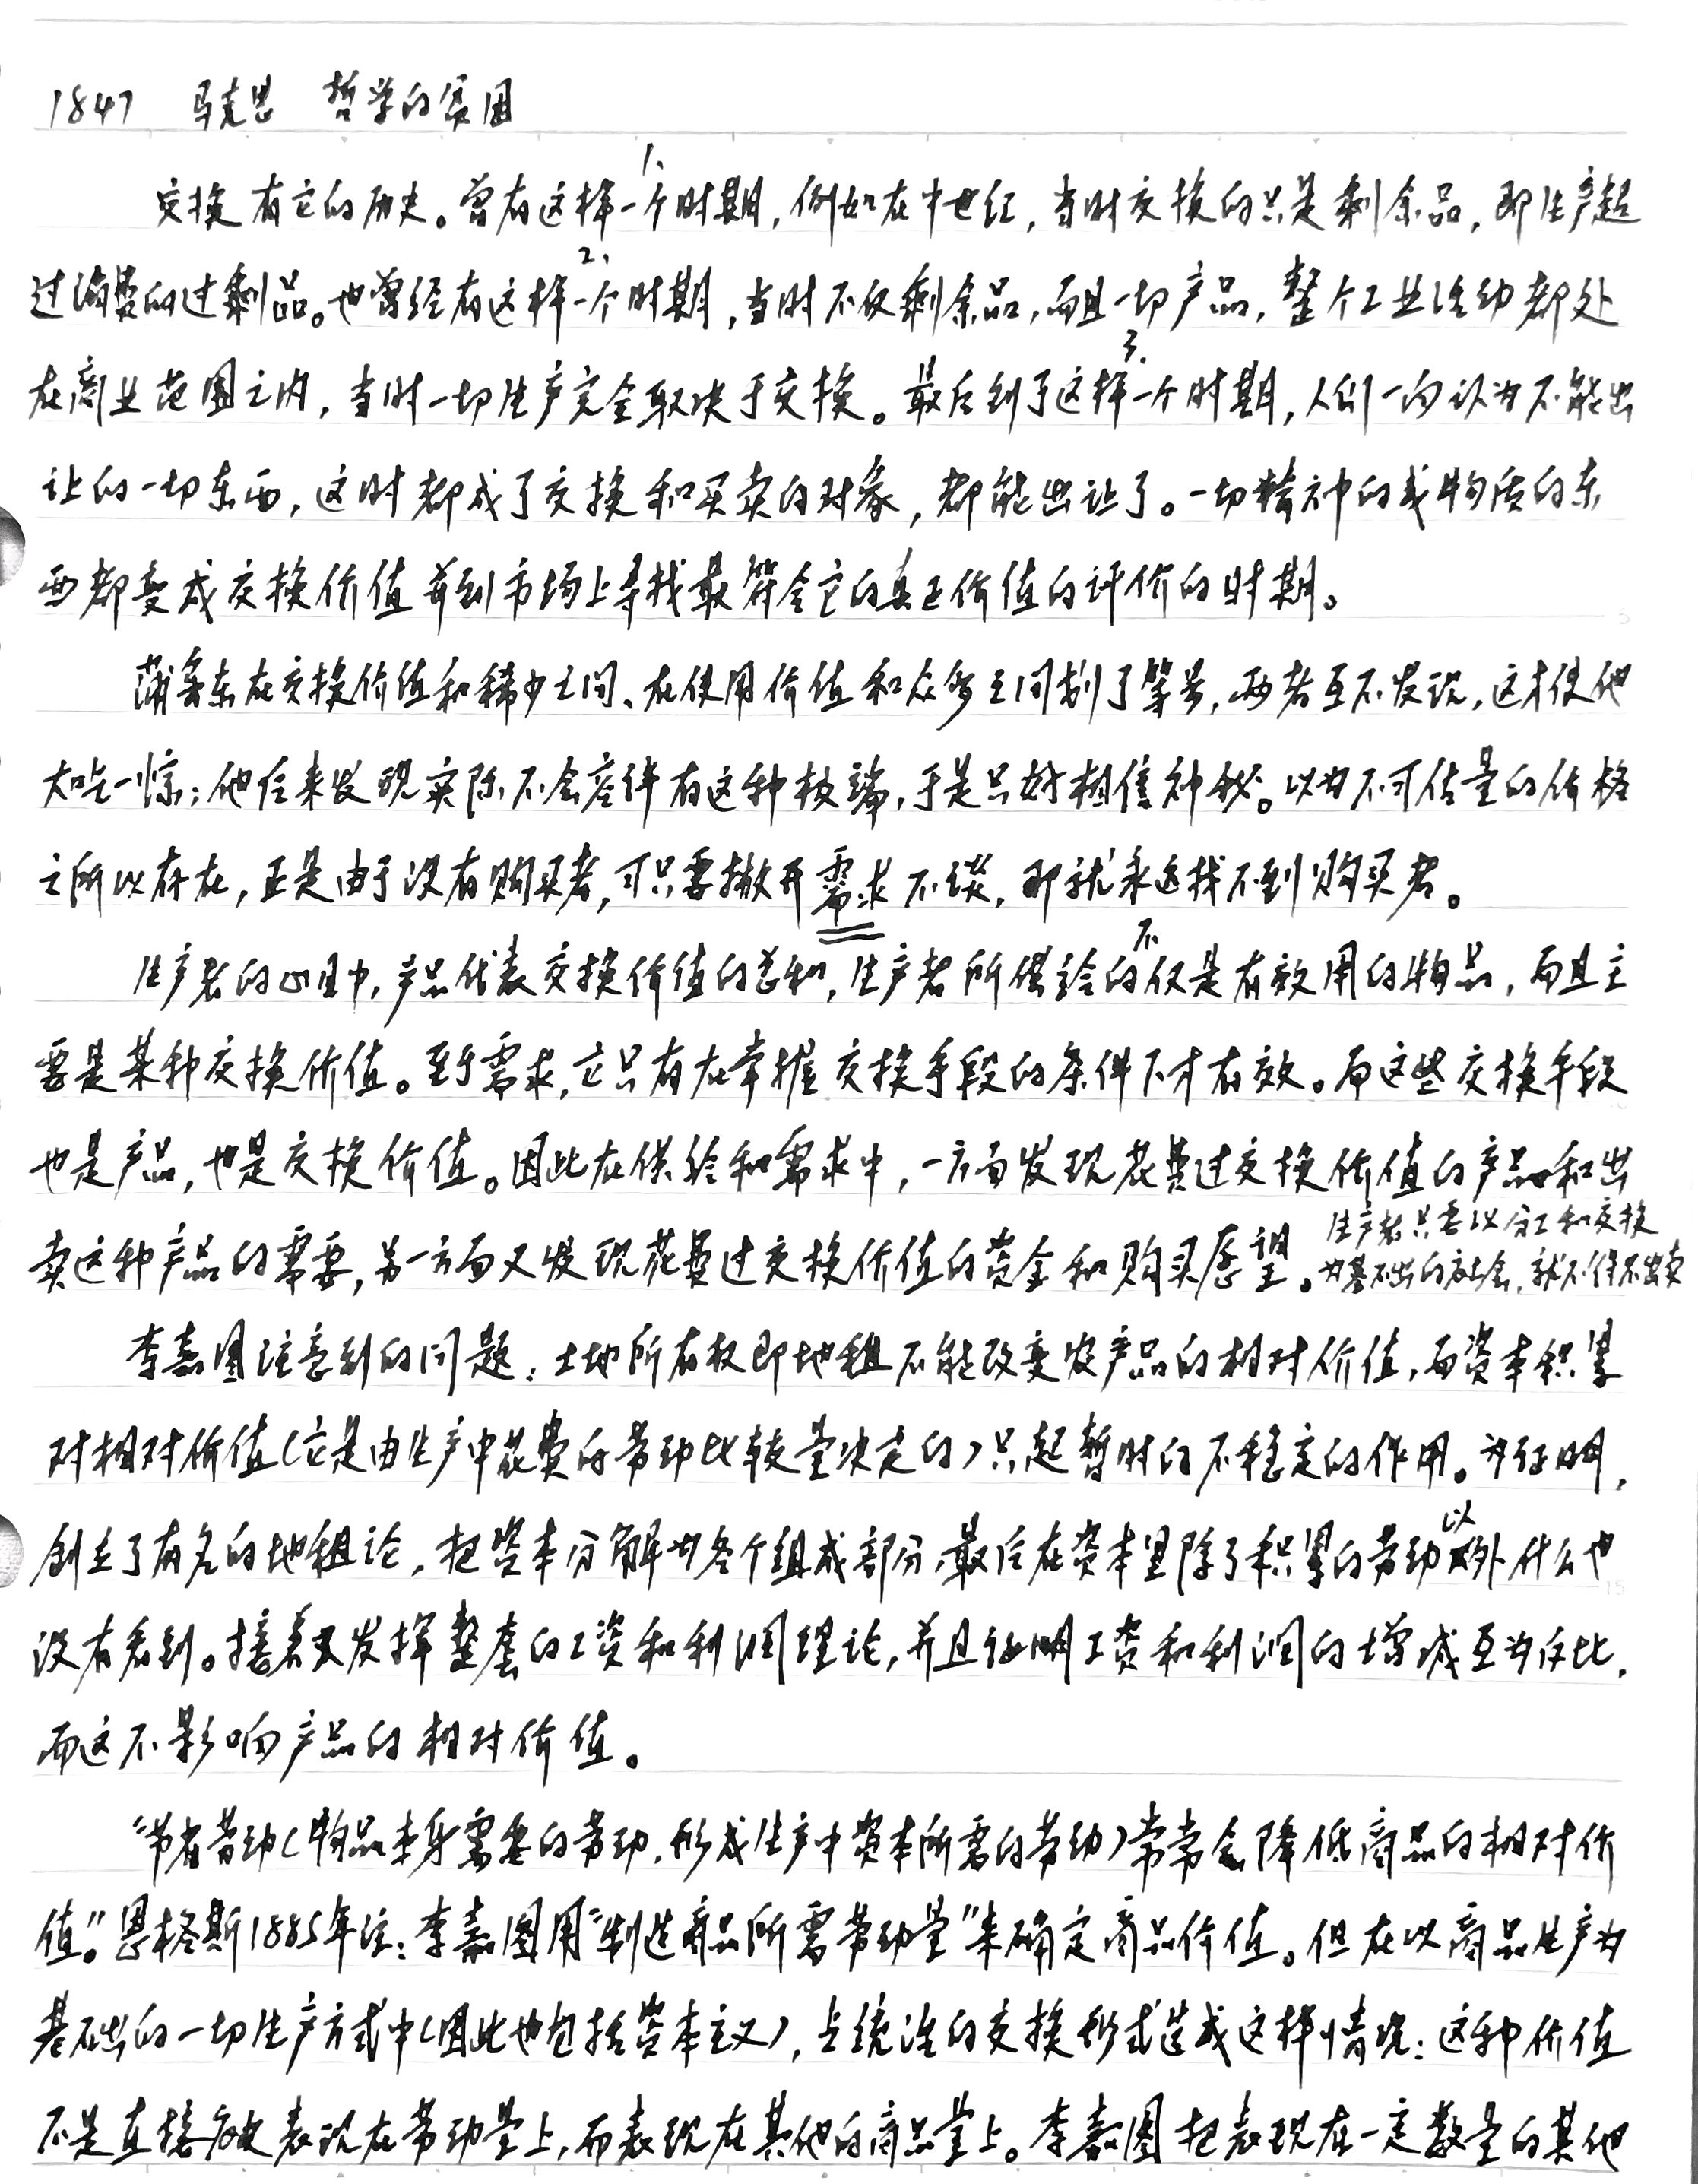 1847 马克思 哲学的贫困
交换有它的历史。曾有这样一个时期,例如在中世纪,当时交换的只是剩余品,即生产超
1、
过消费的过剩品。也曾经有这样一个时期,当时不仅剩余品,而且一切产品,整个工业活动都处
2、
在商业范围之内,当时一切生产完全取决于交换。最后到了这样一个时期,人们一向认为不能出
3、
让的一切东西,这时都成了交换和买卖的对象,都能出让了。一切精神的或物质的东
西都变成交换价值并到市场上寻找最符合它的真正价值的评价的时期。
蒲鲁东在交换价值和稀少之间、在使用价值和众多之间划了等号,两者互不发现,这才使他
大吃一惊;他后来发现实际不会容许有这种极端,于是只好相信神秘。以为不可估量的价格
之所以存在,正是由于没有购买者,可只要撇开需求不谈,那就永远找不到购买者。
生产者的心目中,产品代表交换价值的总和,生产者所供给的不仅是有效用的物品,而且主
要是某种交换价值。至于需求,它只有在掌握交换手段的条件下才有效。而这些交换手段
也是产品,也是交换价值。因此在供给和需求中,一方面发现花费过交换价值的产品和出
卖这种产品的需要,另一方面又发现花费过交换价值的资金和购买愿望。
生产者只要以分工和交换
为基础的社会,就不得不出卖
李嘉图注意到的问题:土地所有权即地租不能改变农产品的相对价值,而资本积累
对相对价值(它是由生产中花费的劳动比较量决定的)只起暂时的不稳定的作用。为证明,
创立了有名的地租论,把资本分解为各个组成部分,最后在资本里除了积累的劳动以外什么也
没有看到。接着又发挥整套的工资和利润理论,并且证明工资和利润的增减互为反比,
而这不影响产品的相对价值。
“节省劳动(物品本身需要的劳动,形成生产中资本所需的劳动)常常会降低商品的相对价
值。”恩格斯1885年注:李嘉图用“制造商品所需劳动量”来确定商品价值。但在以商品生产为
基础的一切生产方式中(因此也包括资本主义),占统治的交换形式造成这样情况:这种价值
不是直接表现在劳动量上,而表现在其他的商品量上。李嘉图把表现在一定数量的其他